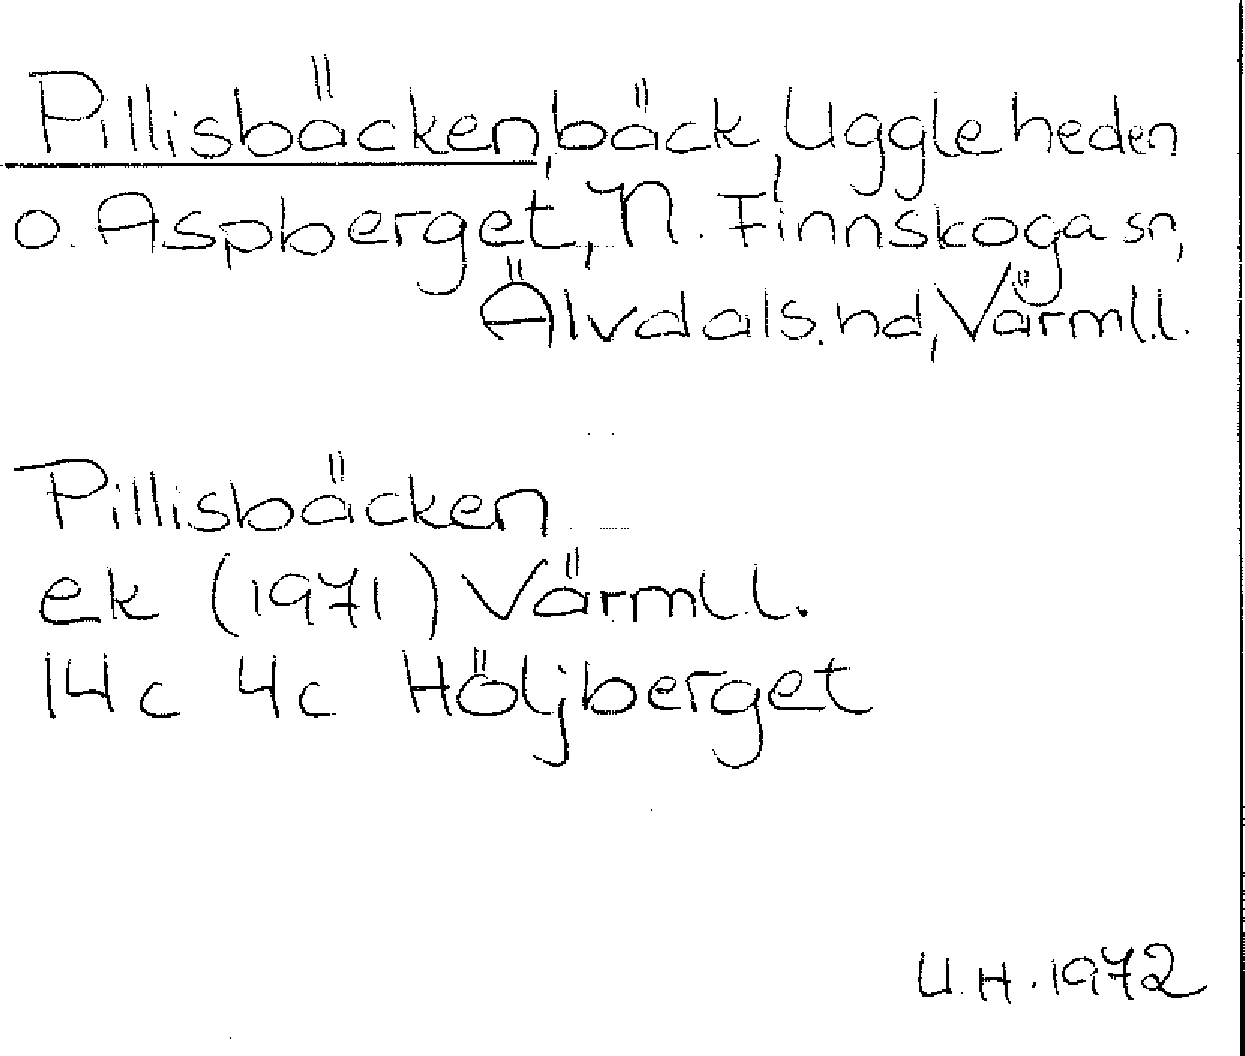 Pillisbäcken, bäck, Uggleheden
o. Aspberget, N. Finnskoga sn,
Älvdals. hd, Värml.l.
Pillisbäcken
ek (1971) Värml.l.
14c 4c Höljberget
U.H. 1972